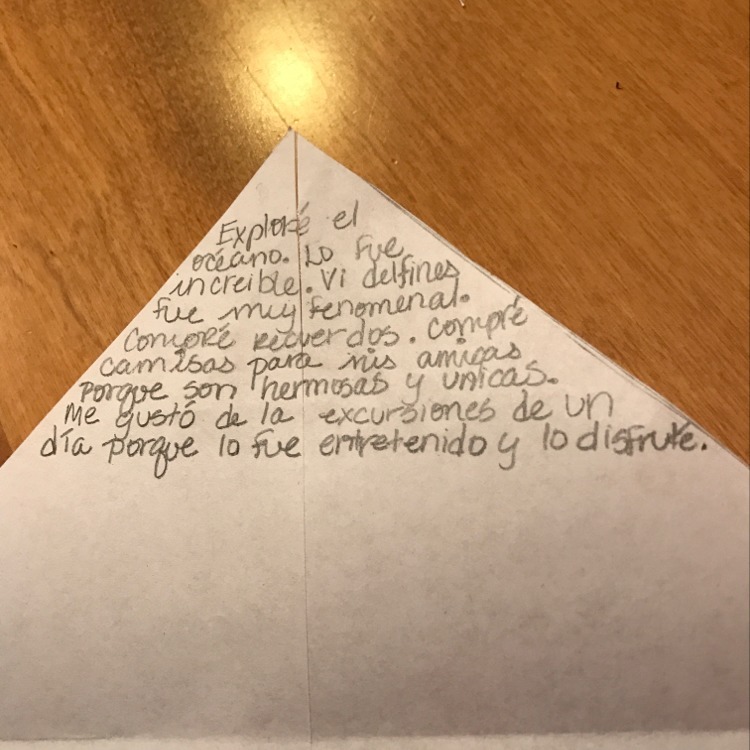 Exploré el
océano. Lo fue
increible. Vi delfines
fue muy fenomenal.
Compré recuerdos. Compré
camisas para mis amigas
porque son hermosas y unicas.
Me gustó de la excursiones de un
día porque lo fue entretenido y lo disfruté.